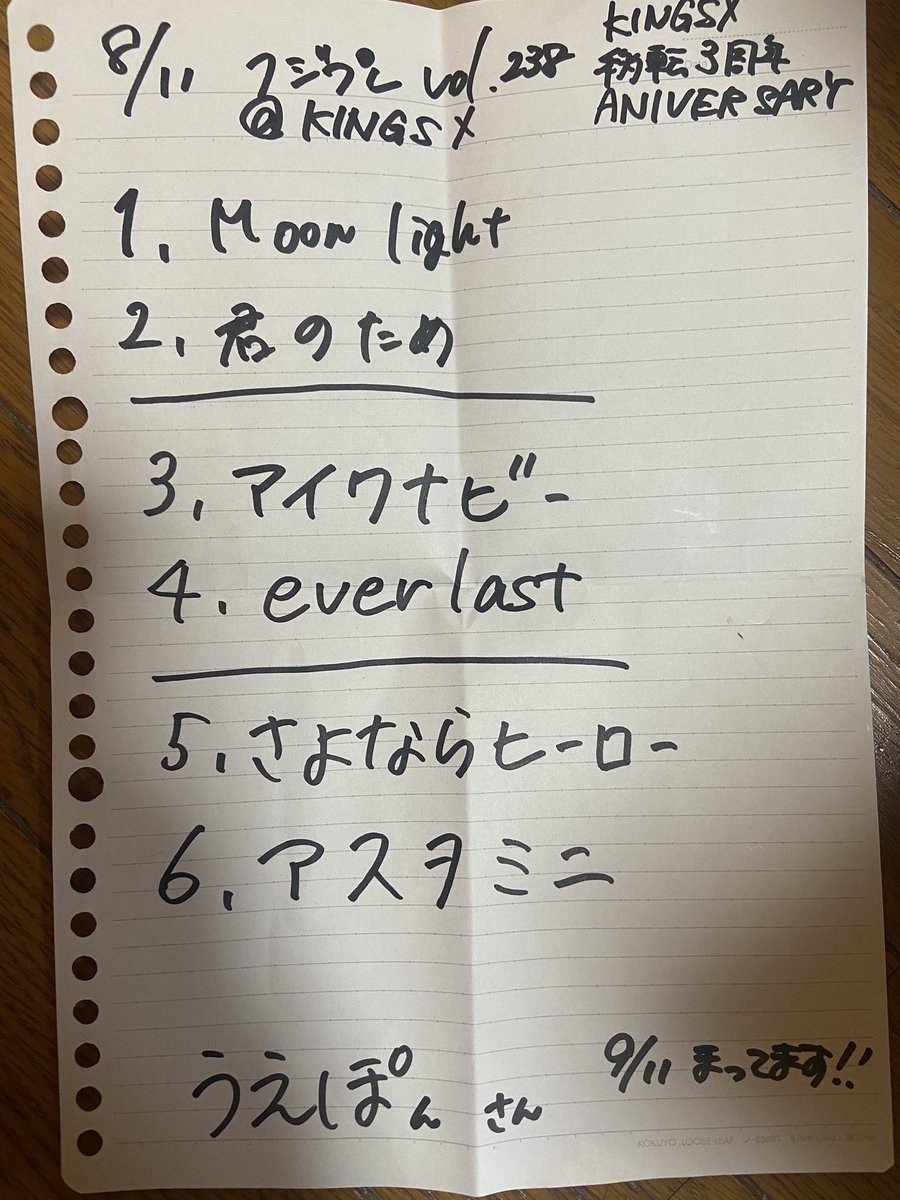 8/11 フジプレ vol.238
@KINGSX
KINGSX
移転3周年
ANIVERSARY
1. Moon light
2. 君のため
3. アイワナビー
4. everlast
5. さよならヒーロー
6. アスヲミニ
うえぽん さん
9/11 まってます!!
KOKUYO LOOSE-LEAF ノ-836BT